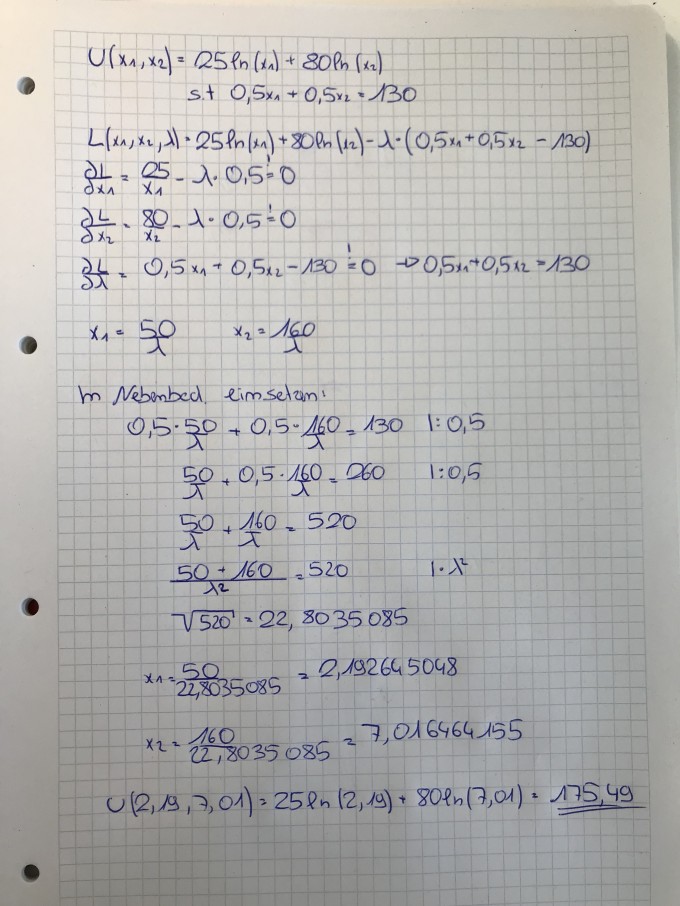 U(x1,x2) = 25ln(x1) + 80ln(x2)
s.t 0,5x1 + 0,5x2 = 130
L(x1,x2,λ) = 25ln(x1) + 80ln(x2) - λ·(0,5x1 + 0,5x2 - 130)
∂L/∂x1 = 25/x1 - λ·0,5 != 0
∂L/∂x2 = 80/x2 - λ·0,5 != 0
∂L/∂λ = 0,5x1 + 0,5x2 - 130 != 0 → 0,5x1 + 0,5x2 = 130
x1 = 50/λ x2 = 160/λ
In Nebenbed. einsetzen:
0,5·50/λ + 0,5·160/λ = 130 |:0,5
50/λ + 0,5·160/λ = 260 |:0,5
50/λ + 160/λ = 520
(50 + 160)/λ² = 520 |·λ²
√520 = 22,8035085
x1 = 50/22,8035085 = 2,192645048
x2 = 160/22,8035085 = 7,016464155
U(2,19, 7,01) = 25ln(2,19) + 80ln(7,01) = 175,49